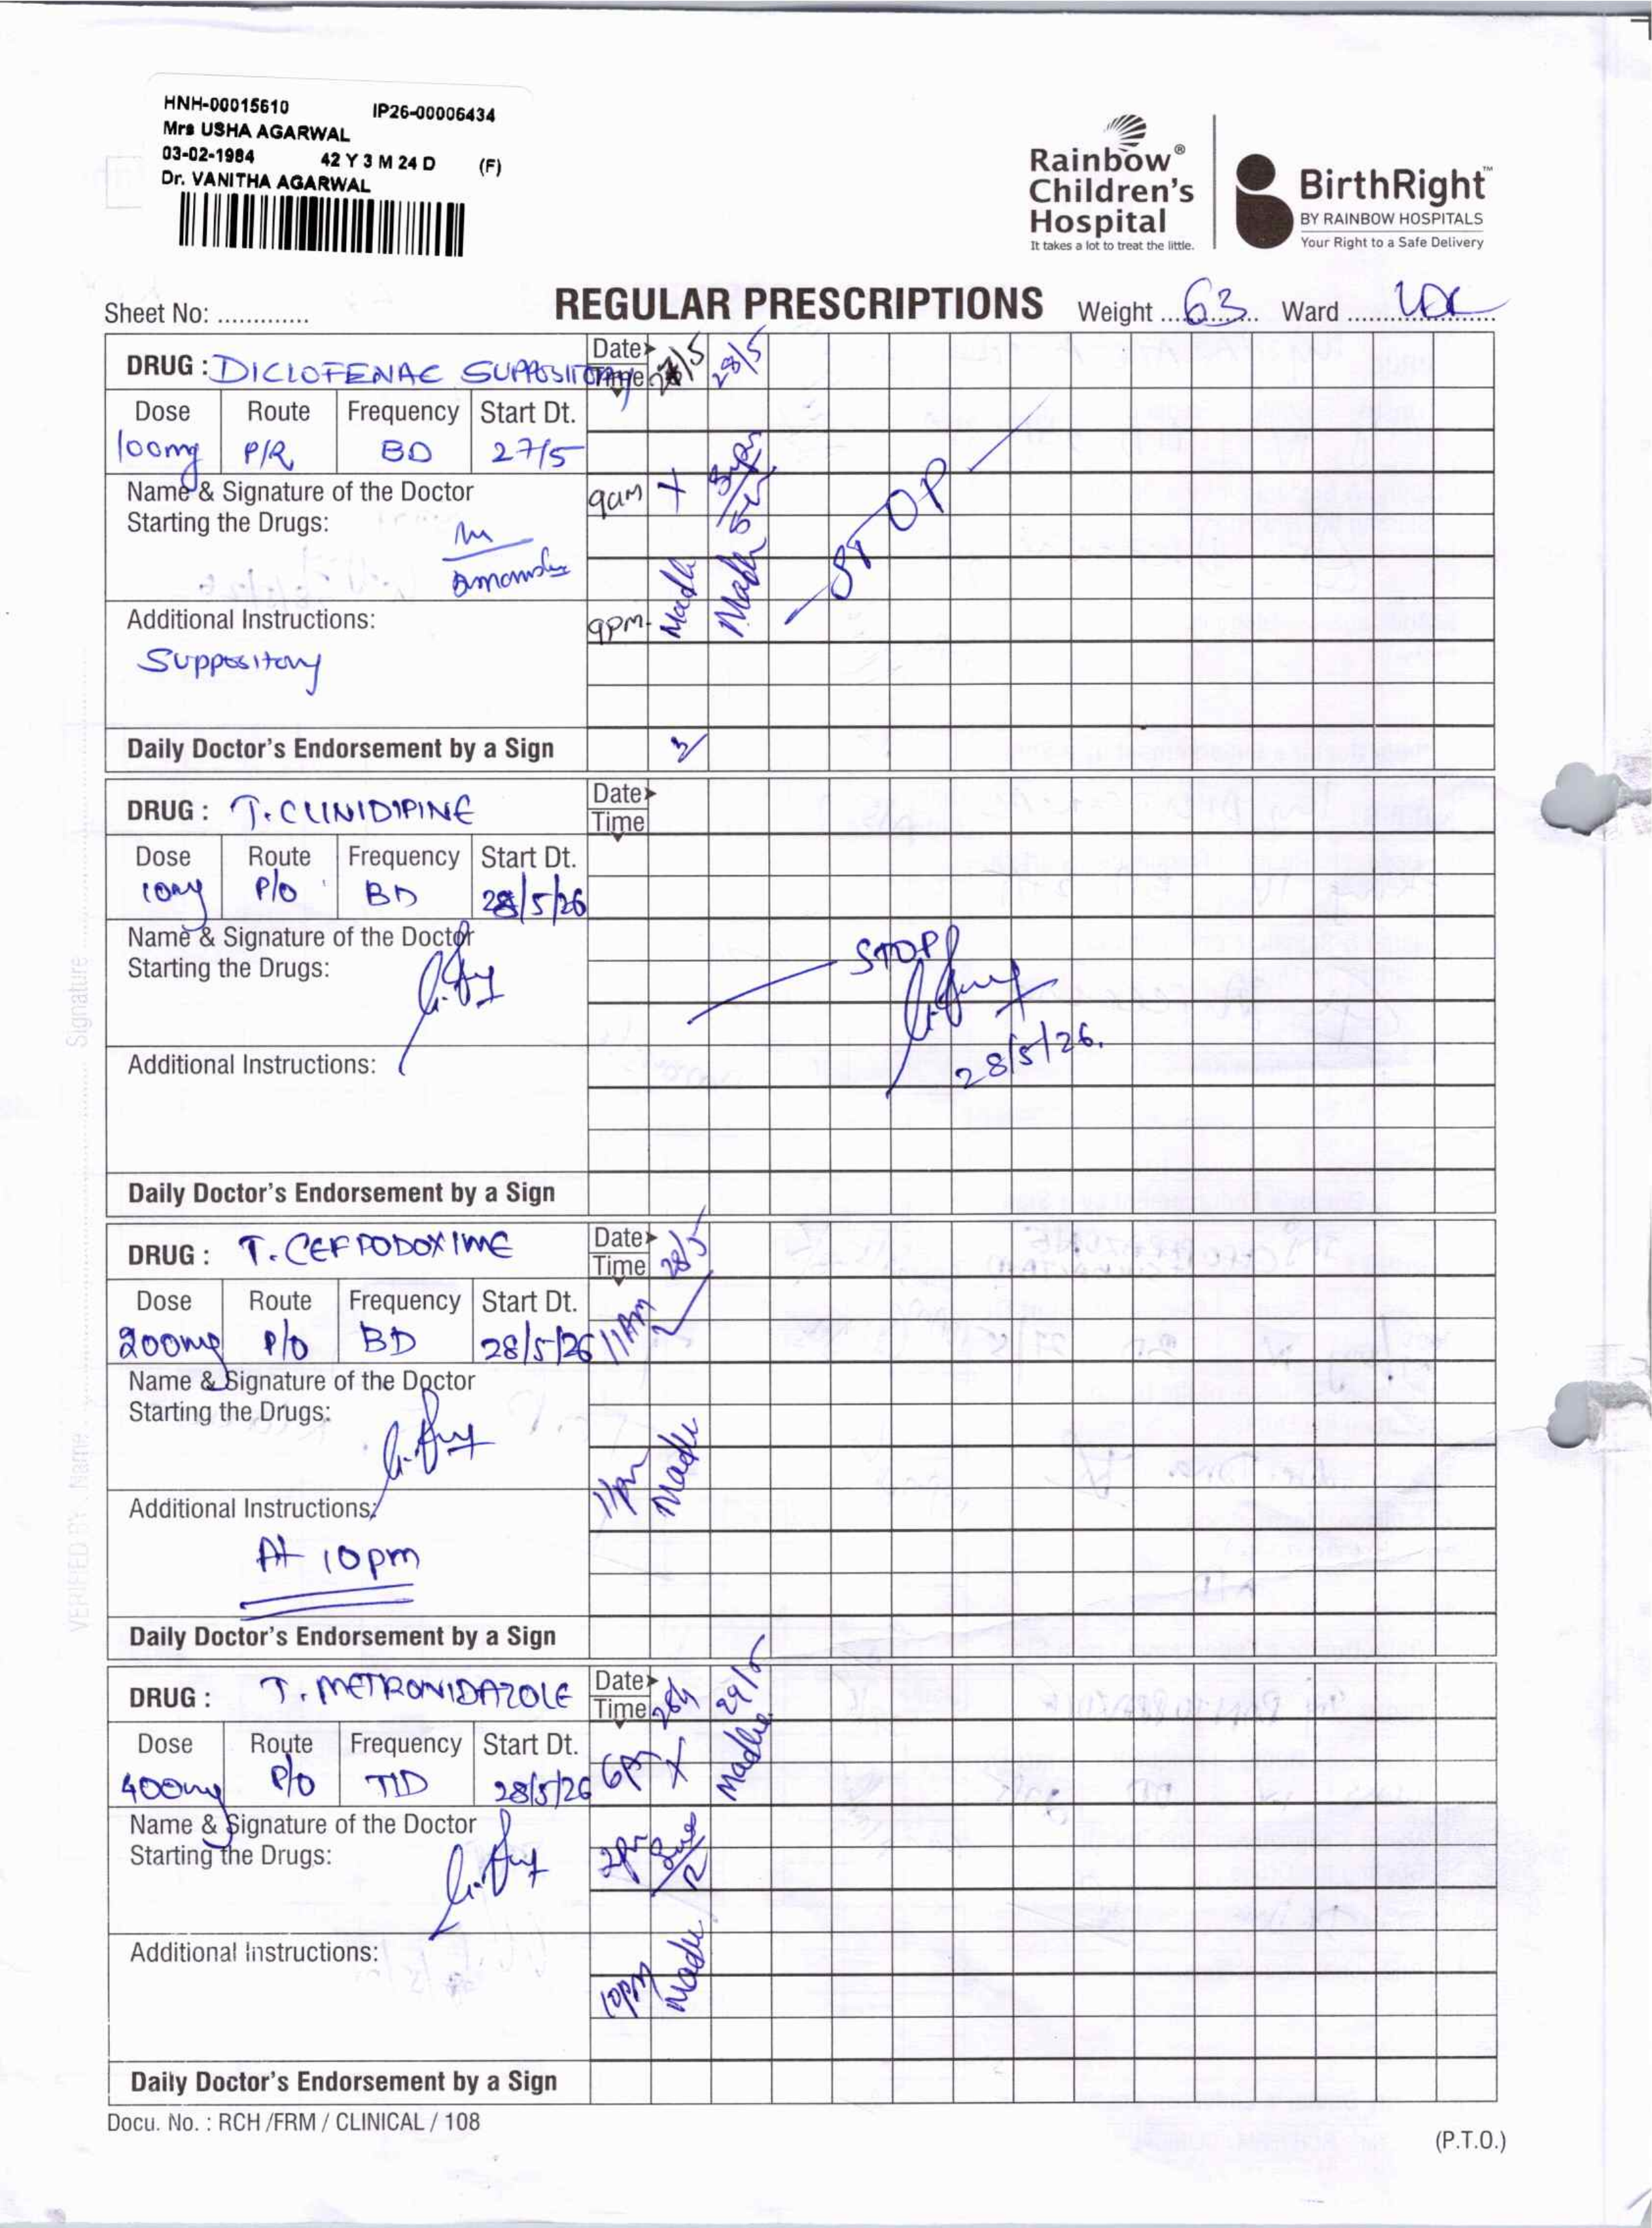 HNH-00015610 IP26-00006434
Mrs USHA AGARWAL
03-02-1984 42 Y 3 M 24 D (F)
Dr. VANITHA AGARWAL
Rainbow®
Children's
Hospital
It takes a lot to treat the little.
BirthRight™
BY RAINBOW HOSPITALS
Your Right to a Safe Delivery
Sheet No: .............
REGULAR PRESCRIPTIONS Weight 63 Ward
DRUG : DICLOFENAC SUPPOSITORY
Date 27/5 28/5
Time
Dose Route Frequency Start Dt.
100mg P/R BD 27/5
Name & Signature of the Doctor
Starting the Drugs:
9am X
STOP
Additional Instructions:
9pm Madhu Madhu
Suppository
Daily Doctor's Endorsement by a Sign
DRUG : T. CLINIDIPINE
Date
Time
Dose Route Frequency Start Dt.
10mg P/O BD 28/5/26
Name & Signature of the Doctor
Starting the Drugs:
STOP
28/5/26.
Additional Instructions:
Daily Doctor's Endorsement by a Sign
DRUG : T. CEFPODOXIME
Date 28/5
Time
Dose Route Frequency Start Dt.
200mg P/O BD 28/5/26 11AM
Name & Signature of the Doctor
Starting the Drugs:
11pm Madhu
Additional Instructions:
At 10pm
Daily Doctor's Endorsement by a Sign
DRUG : T. METRONIDAZOLE
Date 28/5 29/5
Time
Dose Route Frequency Start Dt.
400mg P/O TID 28/5/26 6A X Madhu
Name & Signature of the Doctor
Starting the Drugs:
2pm
Additional Instructions:
10pm Madhu
Daily Doctor's Endorsement by a Sign
Docu. No. : RCH /FRM / CLINICAL / 108
(P.T.O.)
VERIFIED BY : Name Signature